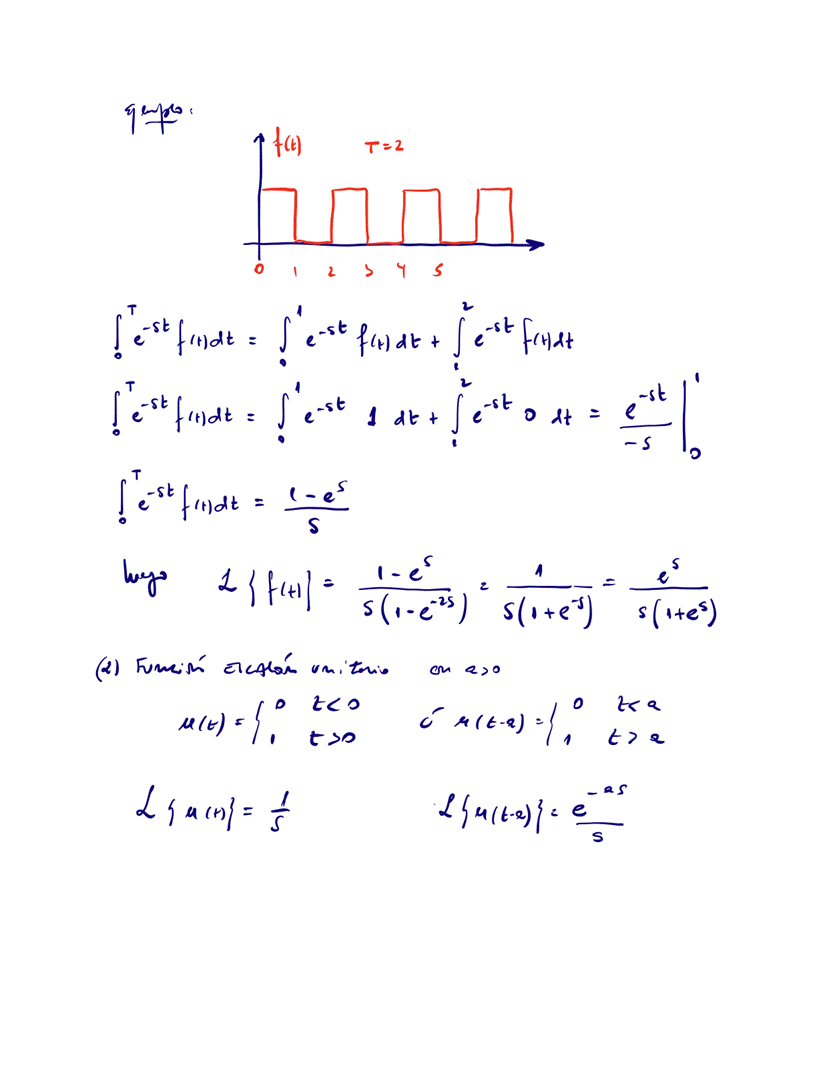 Ejemplo:
f(t) T=2
0 1 2 3 4 5
∫₀ᵀ e^{-st} f(t)dt = ∫₀¹ e^{-st} f(t) dt + ∫₁² e^{-st} f(t)dt
∫₀ᵀ e^{-st} f(t)dt = ∫₀¹ e^{-st} 1 dt + ∫₁² e^{-st} 0 dt = e^{-st}/-s |₀¹
∫₀ᵀ e^{-st} f(t)dt = (1-e^{s})/s
luego L{f(t)} = (1-e^{s})/(s(1-e^{-2s})) = 1/(s(1+e^{-s})) = e^{s}/(s(1+e^{s}))
(2) Función escalón unitario con a>0
μ(t) = { 0 t<0 ; 1 t>0 ó μ(t-a) = { 0 t<a ; 1 t>a
L{μ(t)} = 1/s L{μ(t-a)} = e^{-as}/s